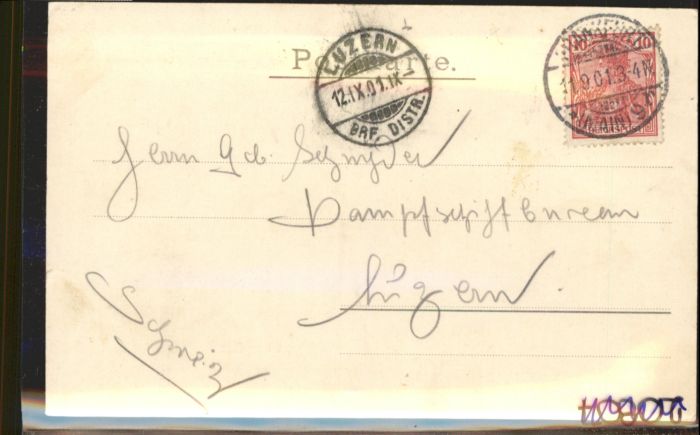 Postkarte.
LUZERN
12.IX.01.IX
BRF. DISTR.
10 10
11 9 01. 3-4N
(MAIN) 9
Herrn Geb. Schnyder
Dampfschiffbureau
Luzern.
Schweiz